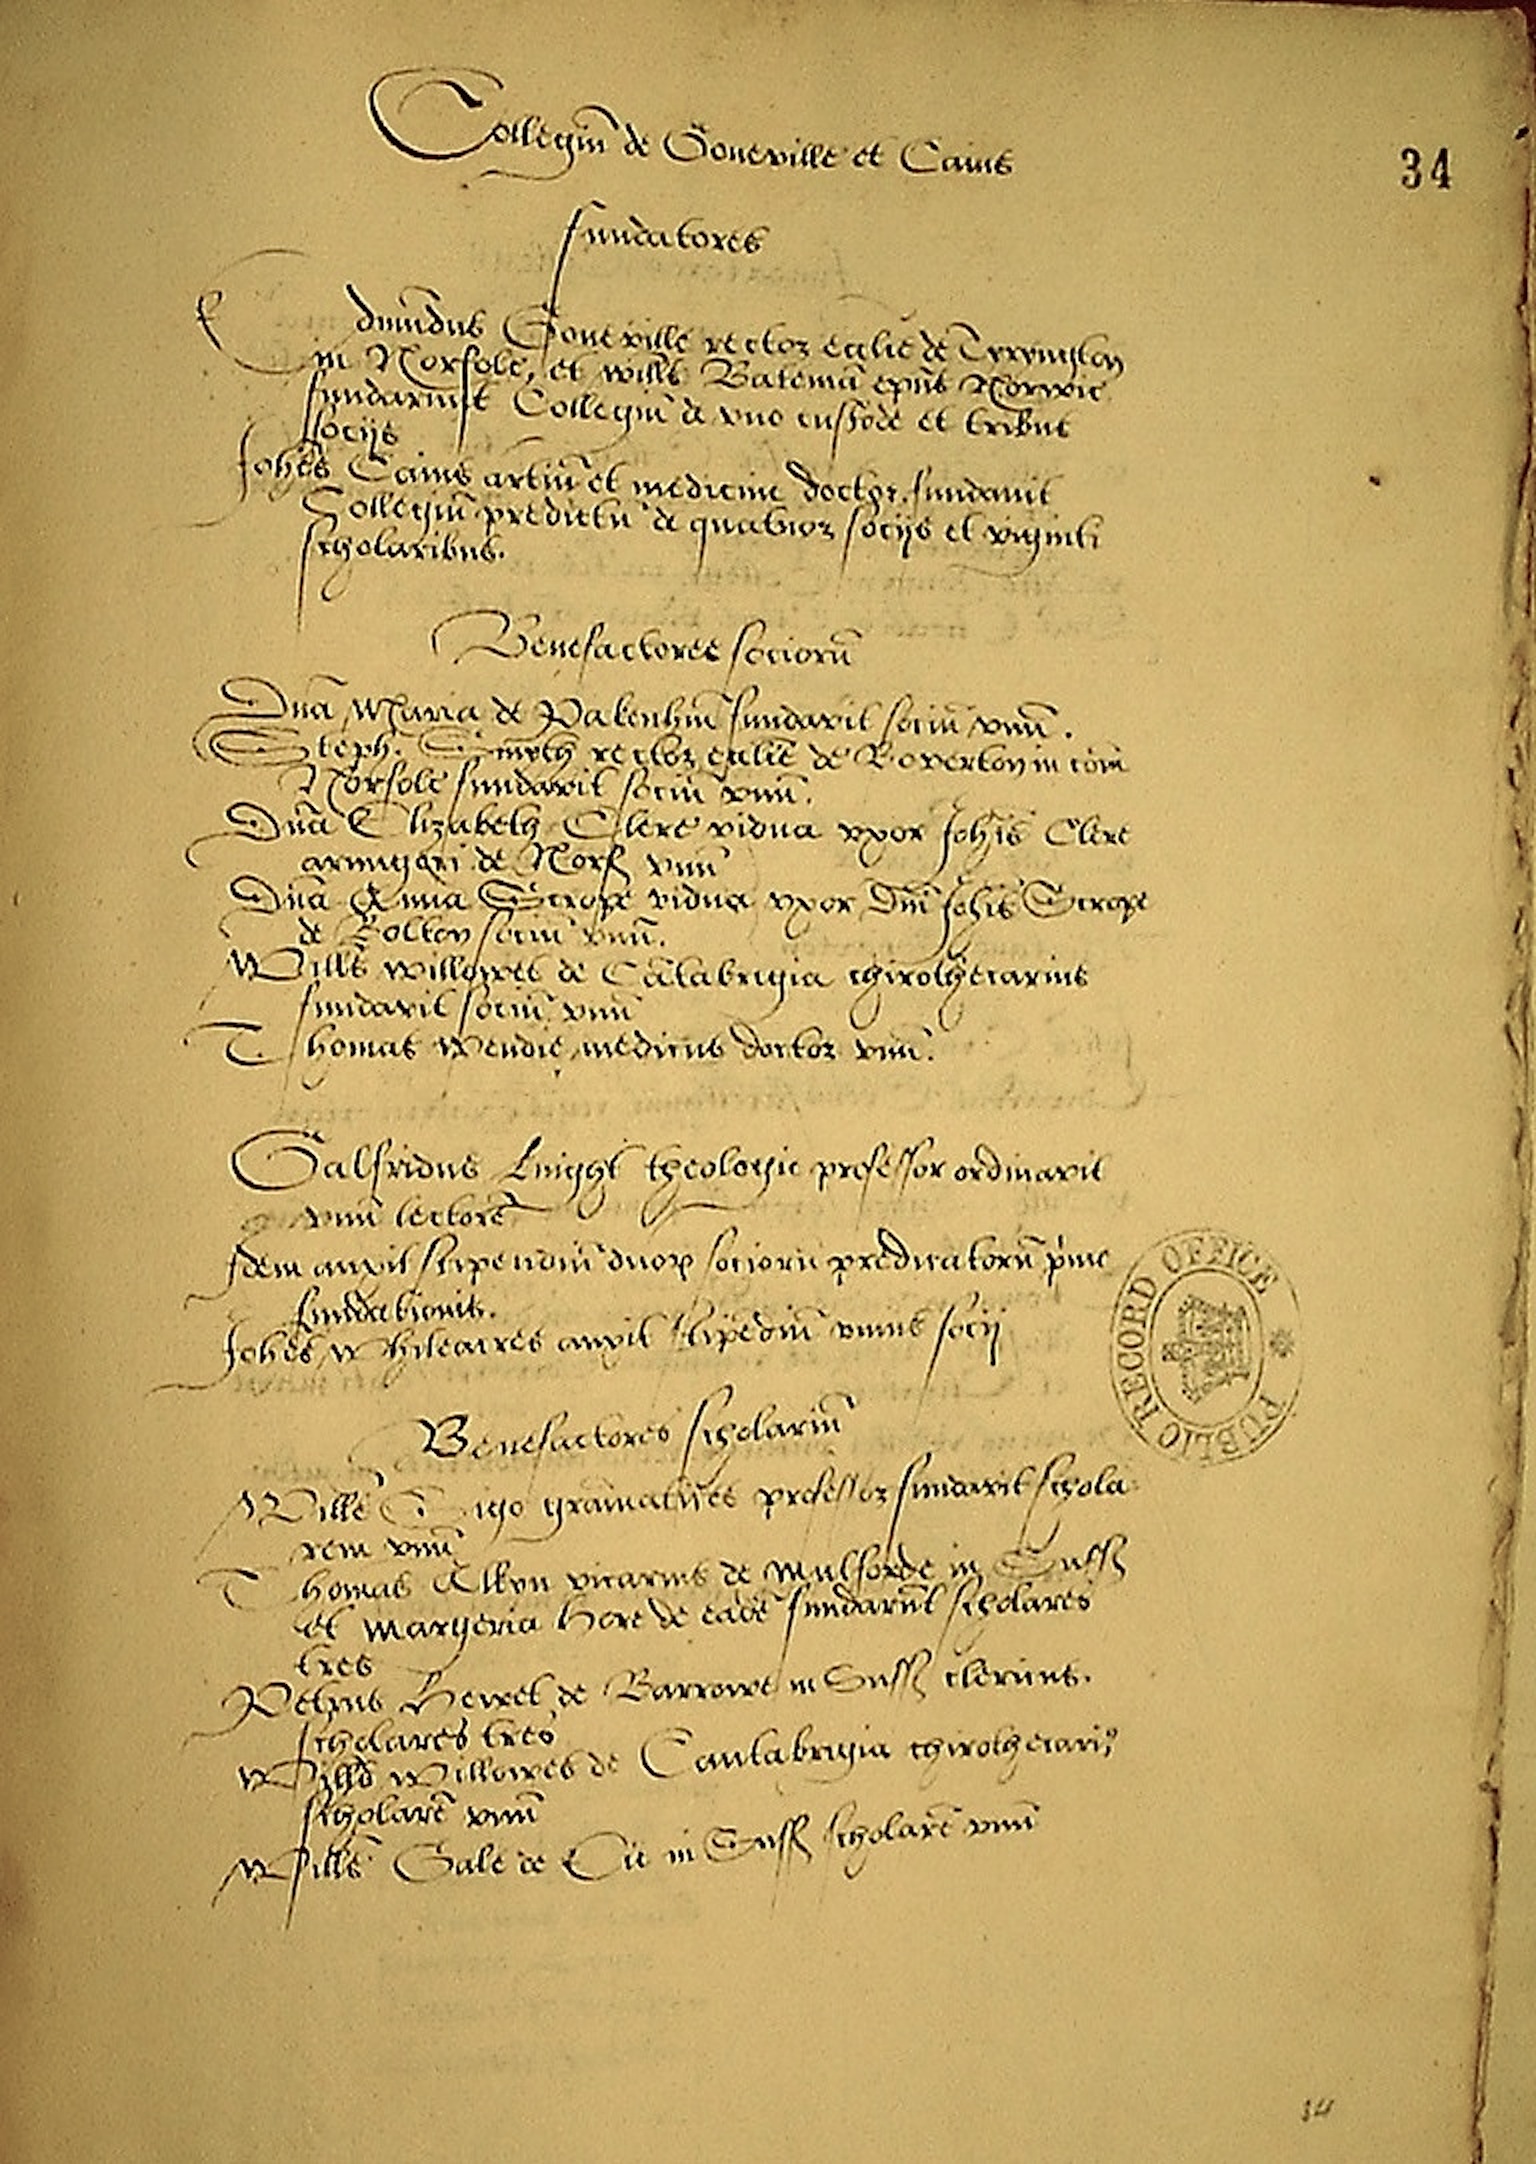 Collegiū de Goneville et Caius
34
fundatores
Edmūdus Goneville rector ecclie de Terrington
in Norfolc, et Wills Batemā epūs Norwic
fundarunt Collegiū de uno custode et tribus
socijs
Johēs Caius artiū et medicine doctor fundavit
Collegiū predictū de quatuor socijs et viginti
scholaribus.
Benefactores sociorū
Dnā Maria de Pakenhm̄ fundavit sociū unū.
Steph. Smyth rector ecclie de Boverton in com̄
Norfolc fundavit sociū unū.
Dnā Elizabeth Clere vidua uxor Johis Clere
armigeri de Norf unū
Dnā Anna Scrope vidua uxor Dnī Johis Scrope
de Bolton sociū unū.
Willē Willowes de Cātabrigia chirothecarius
fundavit sociū unū
Thomas Wendie medicus doctor unū.
Galfridus Knight theologie professor ordinavit
unū lectorē
Idem auxit stipendiū duorꝝ sociorū predicatorū prime
fundationis.
Johēs Whiteacres auxit stipēdiū unius socij
Benefactores scholariū
Willē Gigo grāmatices professor fundavit schola
rem unū
Thomas Atkyn vicarius de Mulforde in Suff
et Margeria Hore de eadē fundarūt scholares
tres
Petrus Hewet de Barrowe in Suff clericus.
scholares tres
Willē Willowes de Cantabrigia chirothecari9
scholarē unū
Willē Gale de Eie in Suff scholarē unū
PUBLIC RECORD OFFICE
34